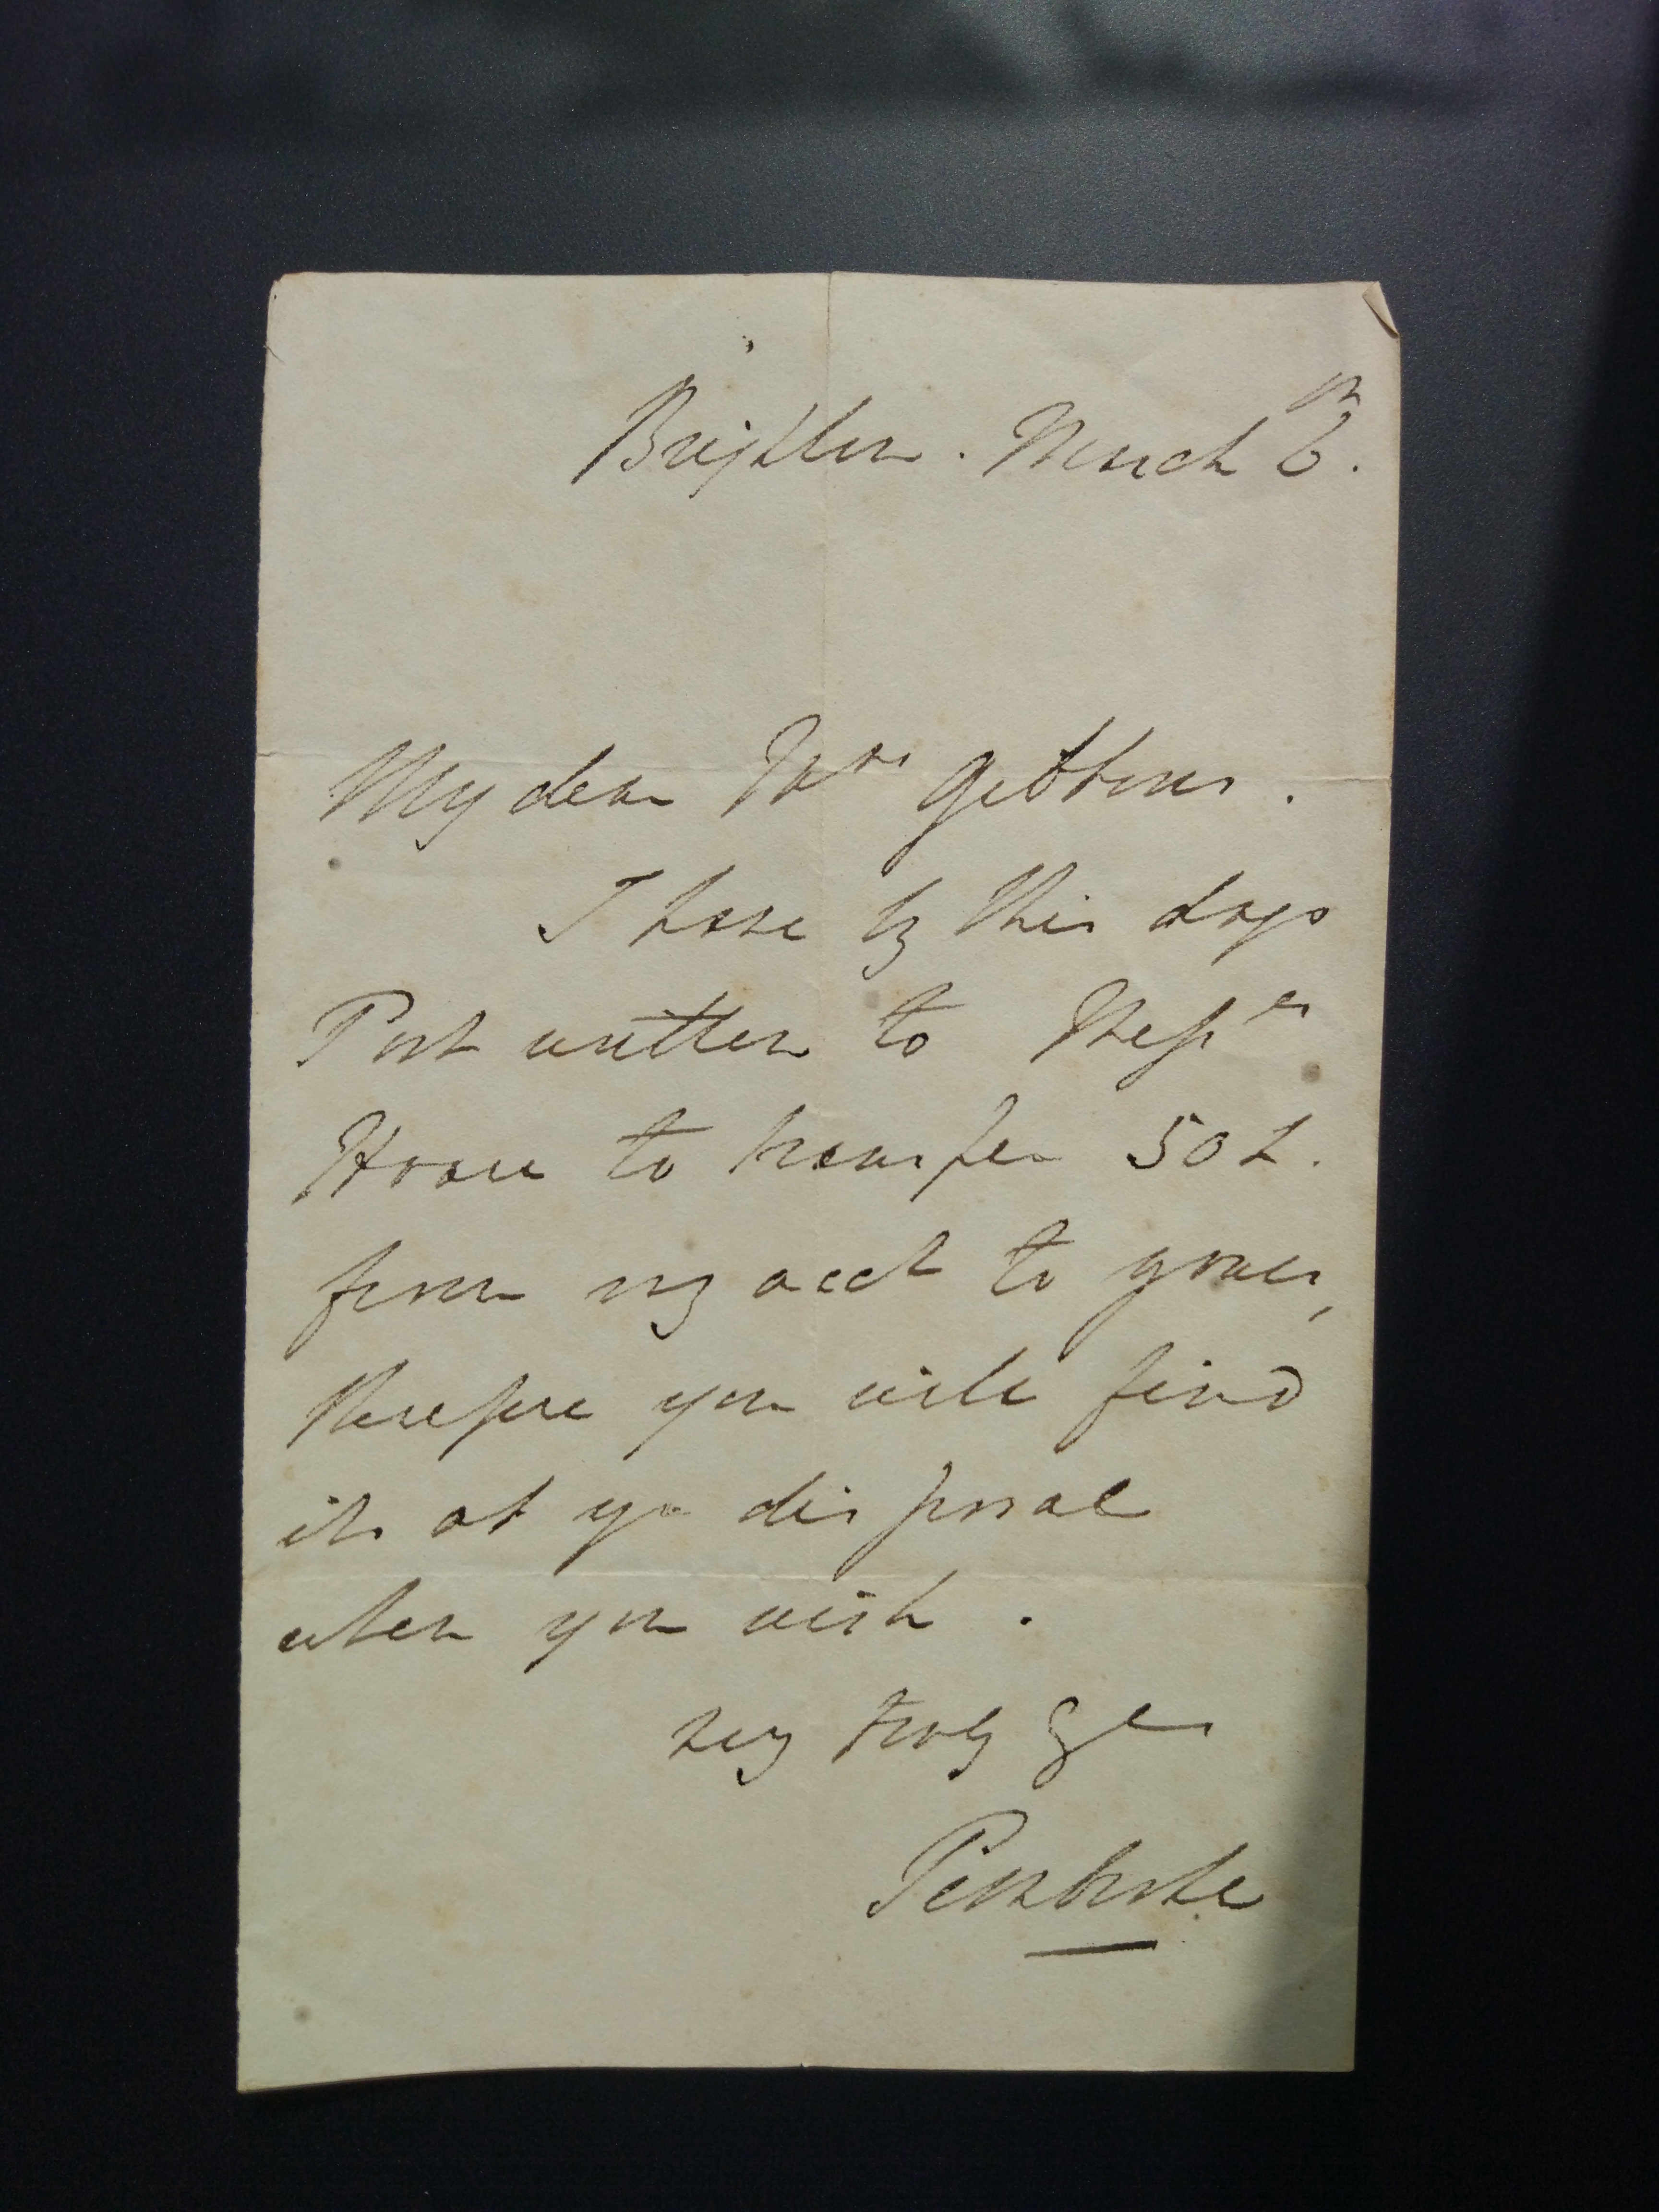 Brighton. March 6th.
My dear Mrs Gibbons.
I have by this days
Post written to Messrs
Hoare to transfer 50L.
from my acct to yours,
therefore you will find
it at yr disposal
when you wish.
very truly Yrs
Pembroke